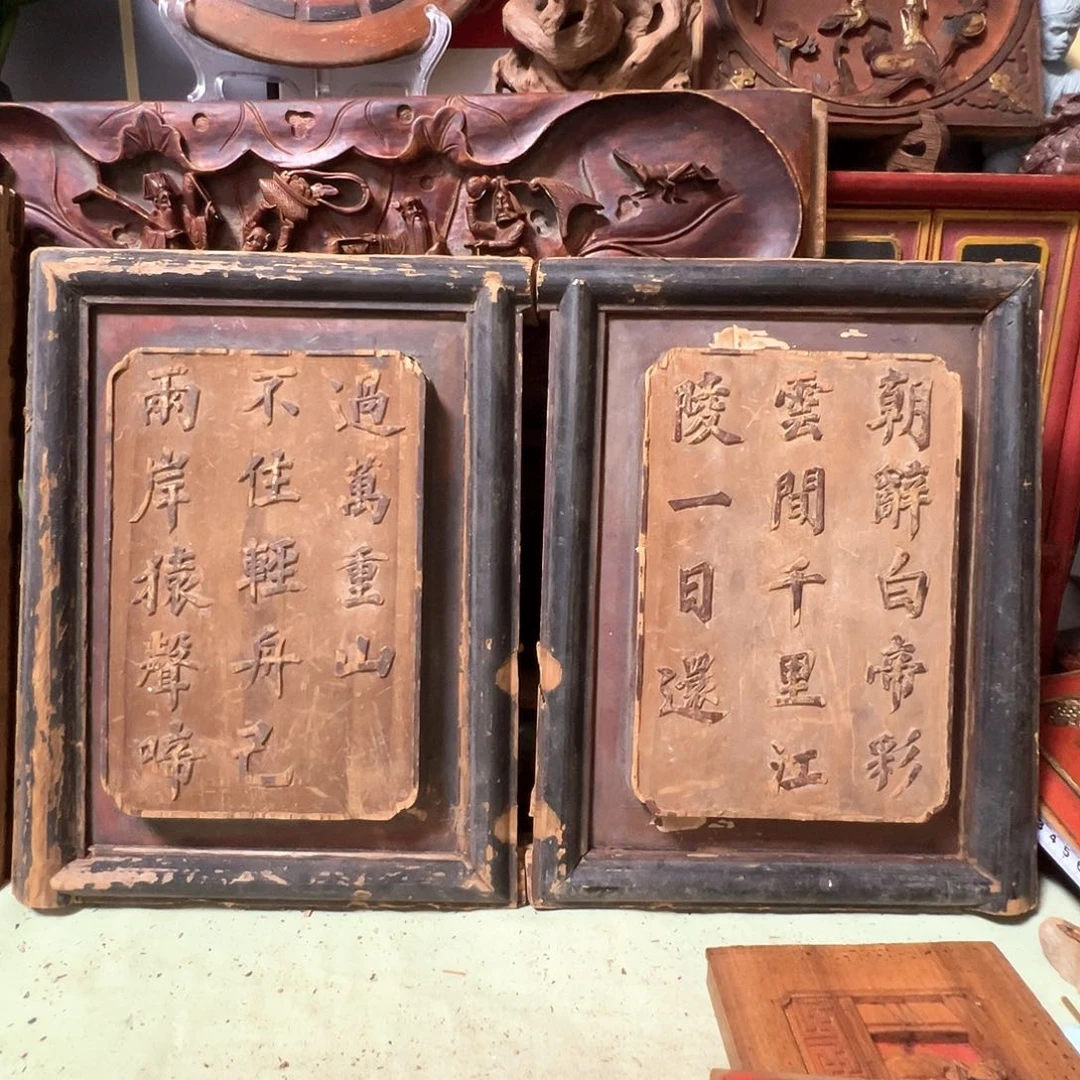 朝辭白帝彩
雲間千里江
陵一日還
兩岸猿聲啼
不住輕舟已
過萬重山
4 5